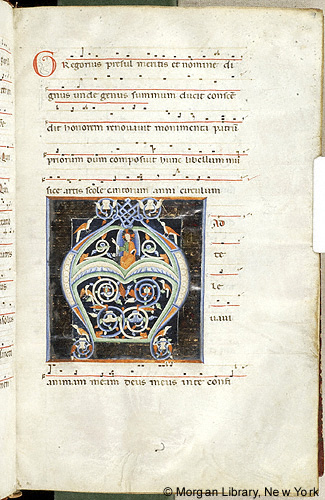 Gregorius presul meritis et nomine di
gnus unde genus summum ducit conscen
dit honorem renovavit monimenta patru
priorum dum composuit hunc libellum mu
sice artis scole cantorum anni circulum
AD
te
le
vavi
animam meam deus meus in te confi
© Morgan Library, New York